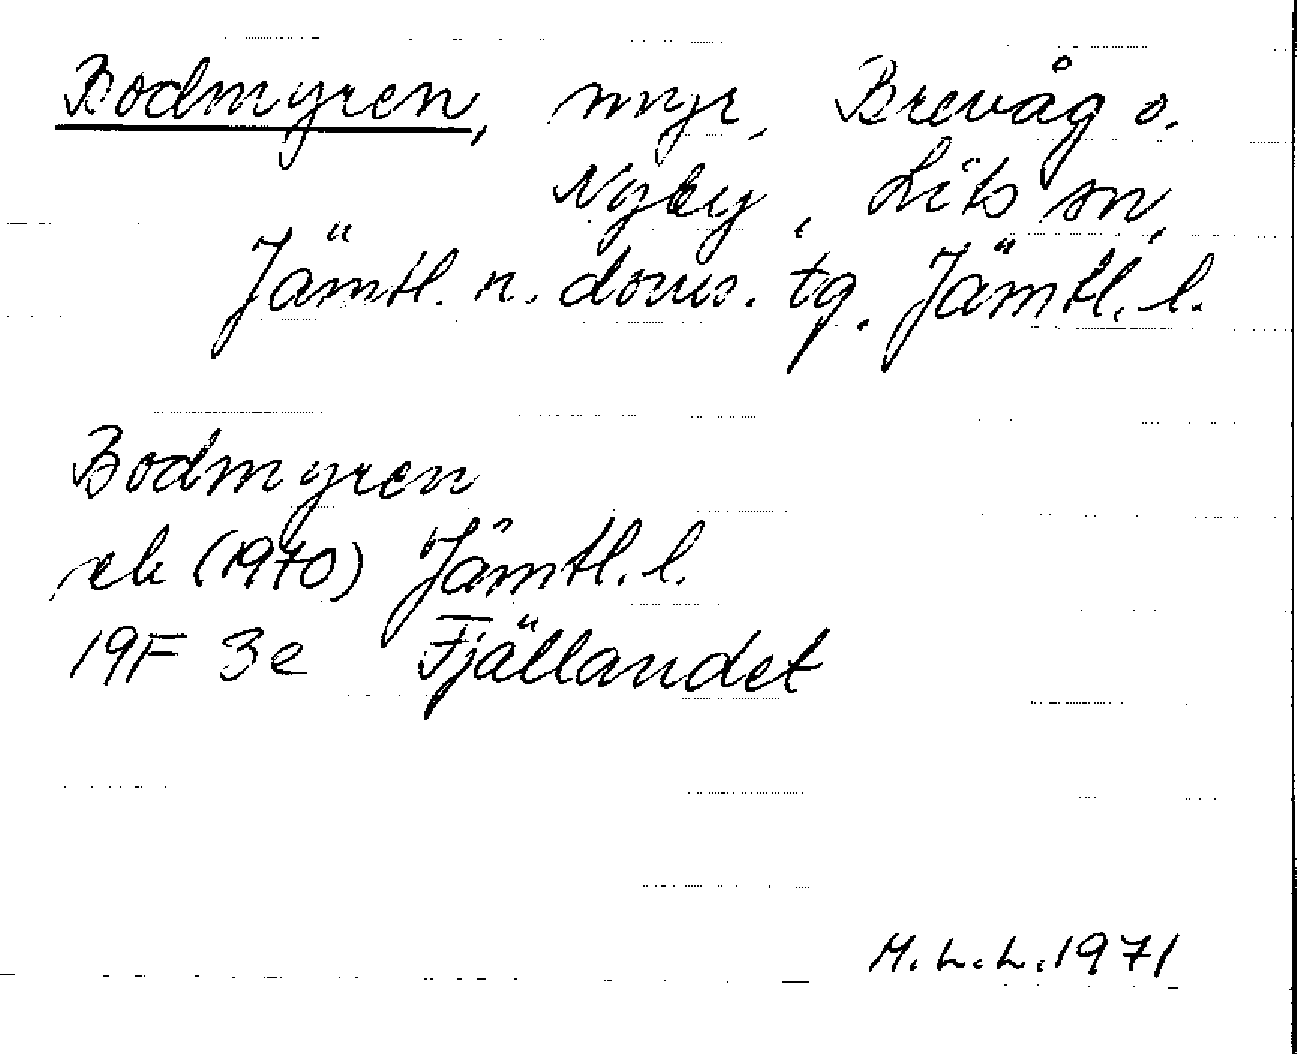 Bodmyren, myr, Brevåg o.
Nyby, Lits sn,
Jämtl. n. doms. tg. Jämtl. l.
Bodmyren
ek (1970) Jämtl. l.
19F 3e Fjällandet
M.L.L. 1971